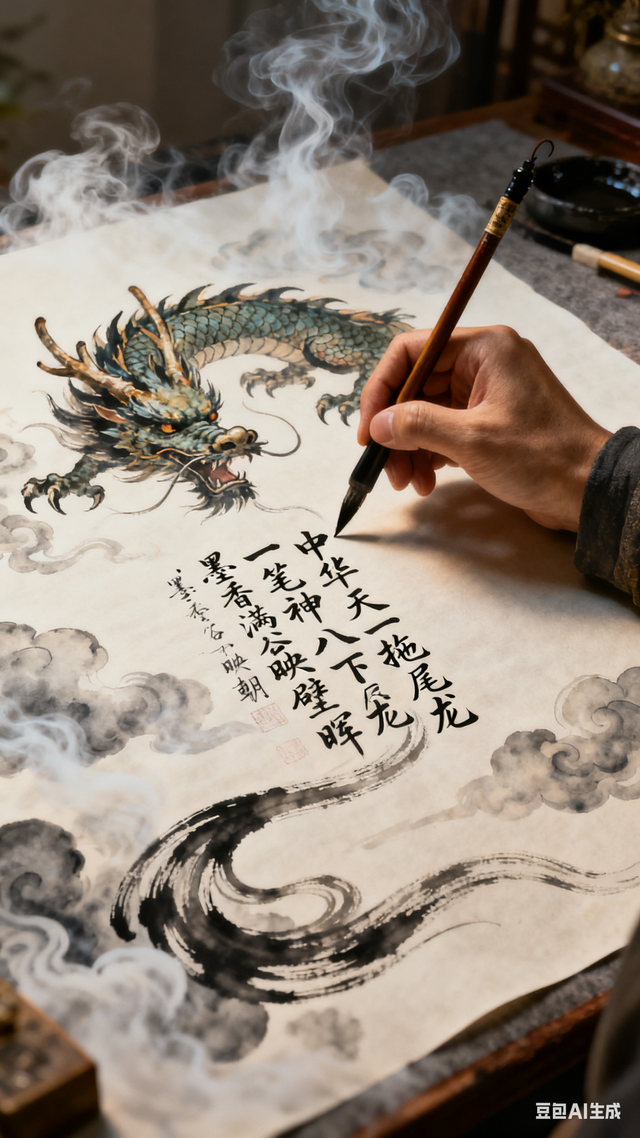 中华天一拖尾龙
一笔神八下龙
墨香满谷映壁晖
墨映朝
豆包AI生成